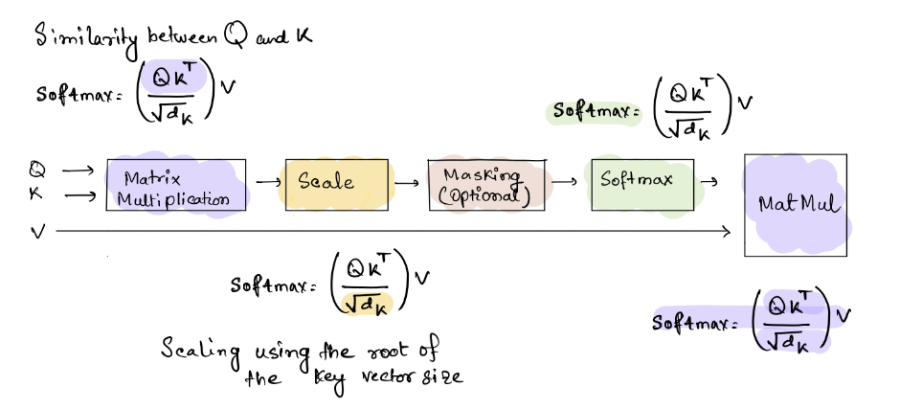 Similarity between Q and K
Softmax = (QK^T / √d_K) V
Softmax = (QK^T / √d_K) V
Q
K
V
Matrix
Multiplication
Scale
Masking
(Optional)
Softmax
MatMul
Softmax = (QK^T / √d_K) V
Softmax = (QK^T / √d_K) V
Scaling using the root of
the key vector size